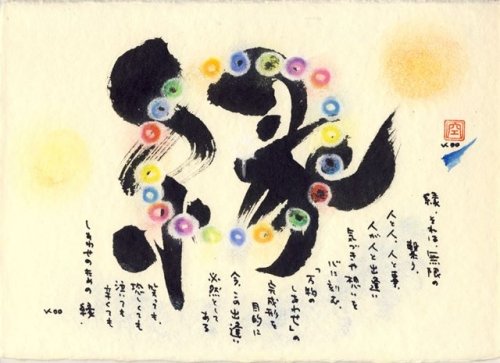 縁
空
縁、それは、無限の
繋り、
人と人、人と事、
人が人と出逢い
気づきや想いを
心に刻む、
「万物の
しあわせ」の
完成形を
目的に
今、この出逢いに
必然として
ある
笑っても、
泣いても
辛くても
しあわせのための 縁、